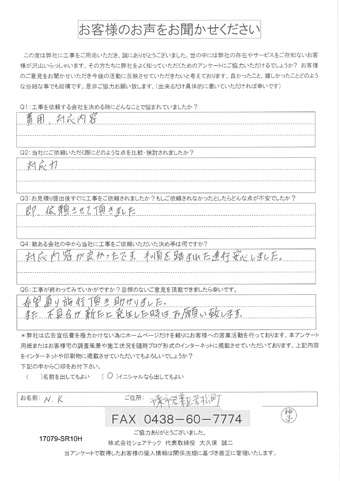 お客様のお声をお聞かせください
この度は弊社に工事をご用命いただき、誠にありがとうございました。世の中には弊社の存在やサービスをご存知ないお客
様が沢山いらっしゃいます。その方たちに弊社をよく知っていただくためのアンケートにご協力いただけるでしょうか？ お客様
のご意見をお聞かせいただき今後の活動に反映させていただきたいと考えております。良かったこと、嬉しかったことどのよう
な些細な事でも結構です。是非ご協力お願い致します。（出来るだけ具体的に書いていただければ幸いです）
Q1：工事を依頼する会社を決める時にどんなことで悩まれていましたか？
費用、対応内容
Q2：当社にご依頼いただく際にどのような点を比較・検討されましたか？
対応力
Q3：お見積り提出後すぐに工事をご依頼されましたか？もしご依頼されなかったとしたらどんな点が不安でしたか？
即、依頼させて頂きました
Q4：数ある会社の中から当社に工事をご依頼いただいた決め手は何ですか？
対応内容が良かったです。手順を踏まれた進行安心しました。
Q5：工事が終わってみていかがですか？忌憚のないご意見を頂戴できましたら幸いです。
希望通り施行頂き助かりました。
また、不具合が新たに発生した時はお願い致します。
＊弊社は広告宣伝費を極力かけない為にホームページだけを頼りにお客様への営業活動を行っております。本アンケート
用紙またはお客様宅の調査風景や施工状況を随時ブログ形式のインターネットに掲載させていただいております。上記内容
をインターネットや印刷物に掲載させていただいてもよろしいでしょうか？
下記の中から〇印をお付け下さい。
（ ）名前を出してもよい （〇）イニシャルなら出してもよい
お名前： N.K ご住所：
FAX 0438-60-7774
ご協力ありがとうございました。
17079-SR10H
株式会社シェアテック 代表取締役 大久保 誠二
当アンケートで取得したお客様の個人情報は関係法規に基づき厳正に管理いたします。